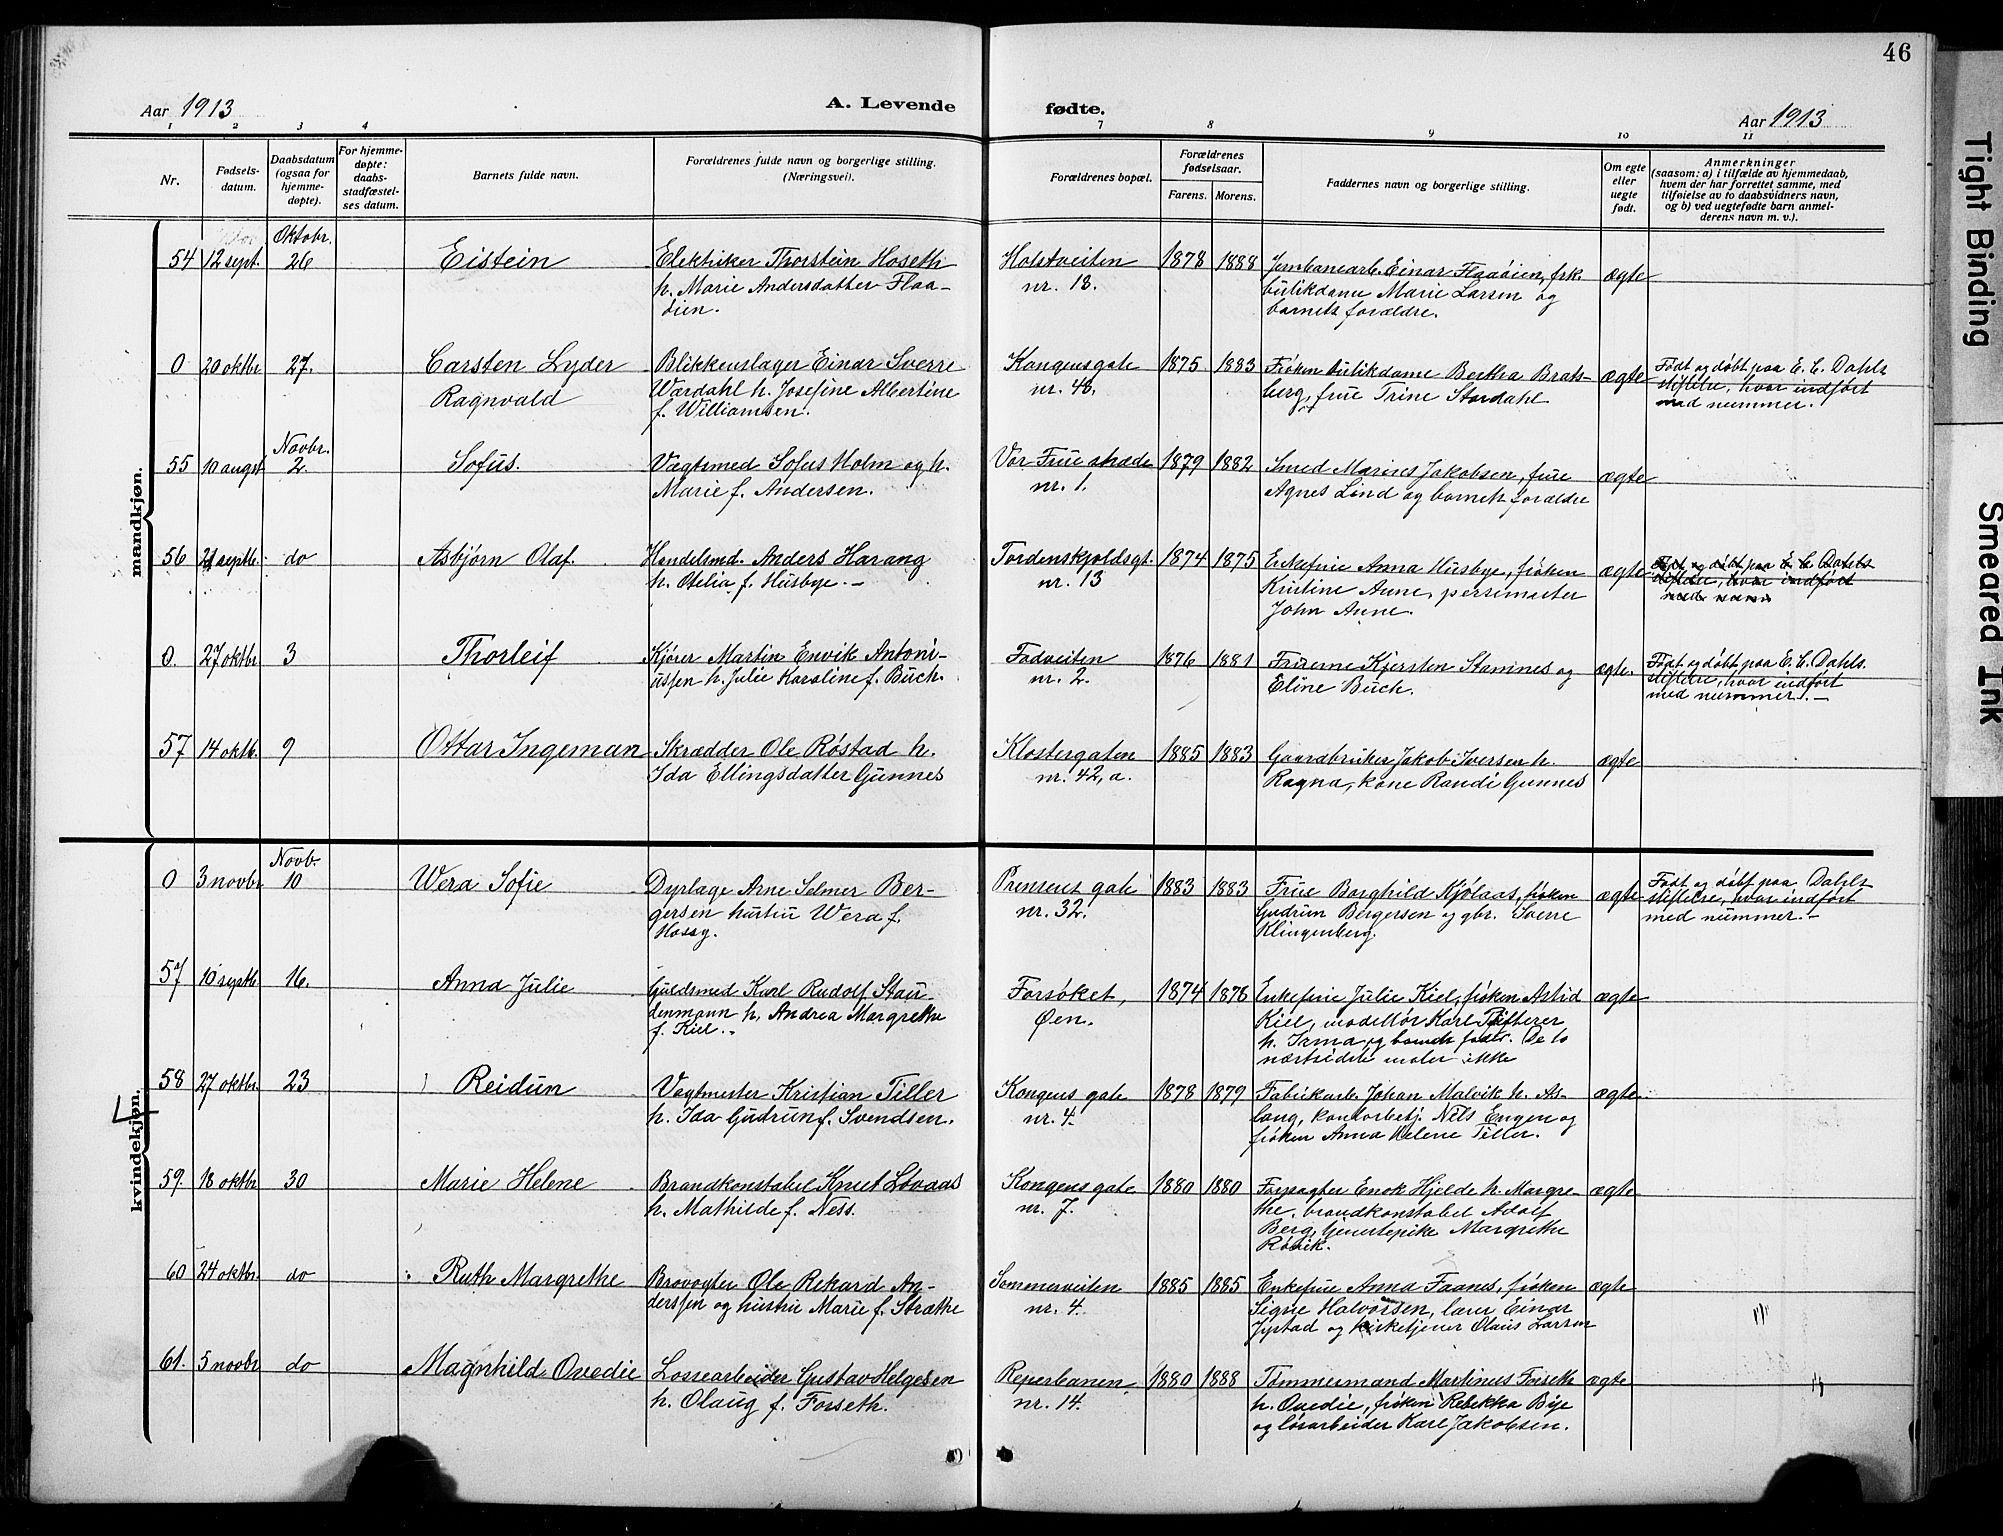 46
Aar 1913
A. Levende
fødte.
Aar 1913
1 2 3 4 7 8 9 10 11
Nr.
Fødsels-
datum.
Daabsdatum
(ogsaa for
hjemme-
døpte).
For hjemme-
døpte:
daabs-
stadfæstel-
ses datum.
Barnets fulde navn.
Forældrenes fulde navn og borgerlige stilling.
(Næringsvei).
Forældrenes bopæl.
Forældrenes
fødselsaar.
Farens. Morens.
Faddernes navn og borgerlige stilling.
Om egte
eller
uegte
født.
Anmerkninger
(saasom: a) i tilfælde av hjemmedaab,
hvem der har forrettet samme, med
tilføielse av to daabsvidners navn,
og b) ved uegtefødte barn anmel-
derens navn m. v.).
mandkjøn.
54 12 sept. Oktobr. 26
Eistein
Elektriker Thorstein Hoseth
h. Marie Andersdatter Flaa-
øien.
Holstveiten
nr. 13.
1878 1888
Jernbanearb. Einar Flaaøien, frk.
butikdame Marie Larsen og
barnets forældre.
ægte
0 20 oktbr 27.
Carsten Lyder
Ragnvald
Blikkenslager Einar Sverre
Wardahl h. Josefine Albertine
f. Williamsen.
Kongensgate
nr. 48.
1875 1883
Frøken butikdame Bertha Brats-
berg, frue Trine Stordahl.
ægte
Født og døbt paa E. C. Dahls
stiftelse, hvor indført
med nummer.
55 10 augst Novbr. 2.
Sofus.
Vægtsmed Sofus Holm og h.
Marie f. Andersen.
Vor Frue stræde
nr. 1.
1879 1882
Smed Marius Jakobsen, frue
Agnes Lind og barnets forældre
ægte
56 septb. do
Asbjørn Olaf.
Handelsmd. Anders Harang
h. Otelia f. Husbye.
Tordenskjoldsgt.
nr. 13
1874 1875
Enkefrue Anna Husbye, frøken
Kristine Aune,
John Aune.
ægte
Født og døbt paa E. C. Dahls
stiftelse, hvor indført
med
0. 27 oktbr 3
Thorleif
Kjører Martin Envik Antoni-
ussen h. Julie Karoline f. Buch.
Fodveiten
nr. 2.
1876 1881
Fruerne Kjersten Stamnes og
Eline Buch.
ægte.
Født og døbt paa E. C. Dahls
stiftelse, hvor indført
med nummer.
57 14 oktb. 9
Ottar Ingeman
Skrædder Ole Røstad h.
Ida Ellingsdatter Gunnes
Klostergaten
nr. 42, a.
1885 1883
Gaardbruker Jakob Iversen h.
Ragna, kone Randi Gunnes
ægte
kvindekjøn.
0 3 novbr Novb. 10
Wera Sofie
Dyrlæge Arne Selmer Ber-
gersen hustru Wera f.
Prinsens gate
nr. 32.
1883 1883
Frue Borghild Kjølaas, frøken
Gudrun Bergersen og gbr. Sverre
Klingenberg.
ægte
Født og døbt paa Dahls
stiftelse, hvor indført
med nummer.
57 10 septb 16.
Anna Julie
Guldsmed Karl Rudolf Stau-
denmann h. Andrea Margrethe
f. Kiel.
Forsøket,
Øen.
1874 1876
Enkefrue Julie Kiel, frøken Astrid
Kiel, modellør Karl
h. Irma og barnets fader. De to
ikke
ægte
58 27 oktbr 23
Reidun
Vagtmester Kristian Tiller
h. Ida Gudrun f. Svendsen.
Kongens gate
nr. 4.
1878 1879
Fabrikarb. Johan Malvik h. As-
laug, kontorbetj. Nils Engen og
frøken Anna Helene Tiller.
ægte
59. 18 oktbr 30
Marie Helene
Brandkonstabel Knut Løvaas
h. Mathilde f. Ness.
Kongens gate
nr. 7.
1880 1880
Forpagter Enok Hjelde h. Margre-
the, brandkonstabel Adolf
Berg, tjenestepike Margrethe
Røvik.
ægte
60 24 oktbr. do
Ruth Margrethe
Brovogter Ole Rekard An-
derssen og hustru Marie f. Strætke
Sommerveiten
nr. 4.
1885 1885
Enkefrue Anna Faanes, frøken
Signe Halvorsen, lærer Einar
Jystad og kirketjener Olaus Larsen
ægte
61. 5 novbr do
Magnhild Ovedie
Lossearbeider Gustav Helgesen
h. Olaug f. Forseth.
Reperbanen
nr. 14.
1880 1888
Tømmermand Martinus Forseth
h. Ovedie, frøken Rebekka Bye
og løsarbeider Karl Jakobsen.
ægte
Tight Binding
Smeared Ink